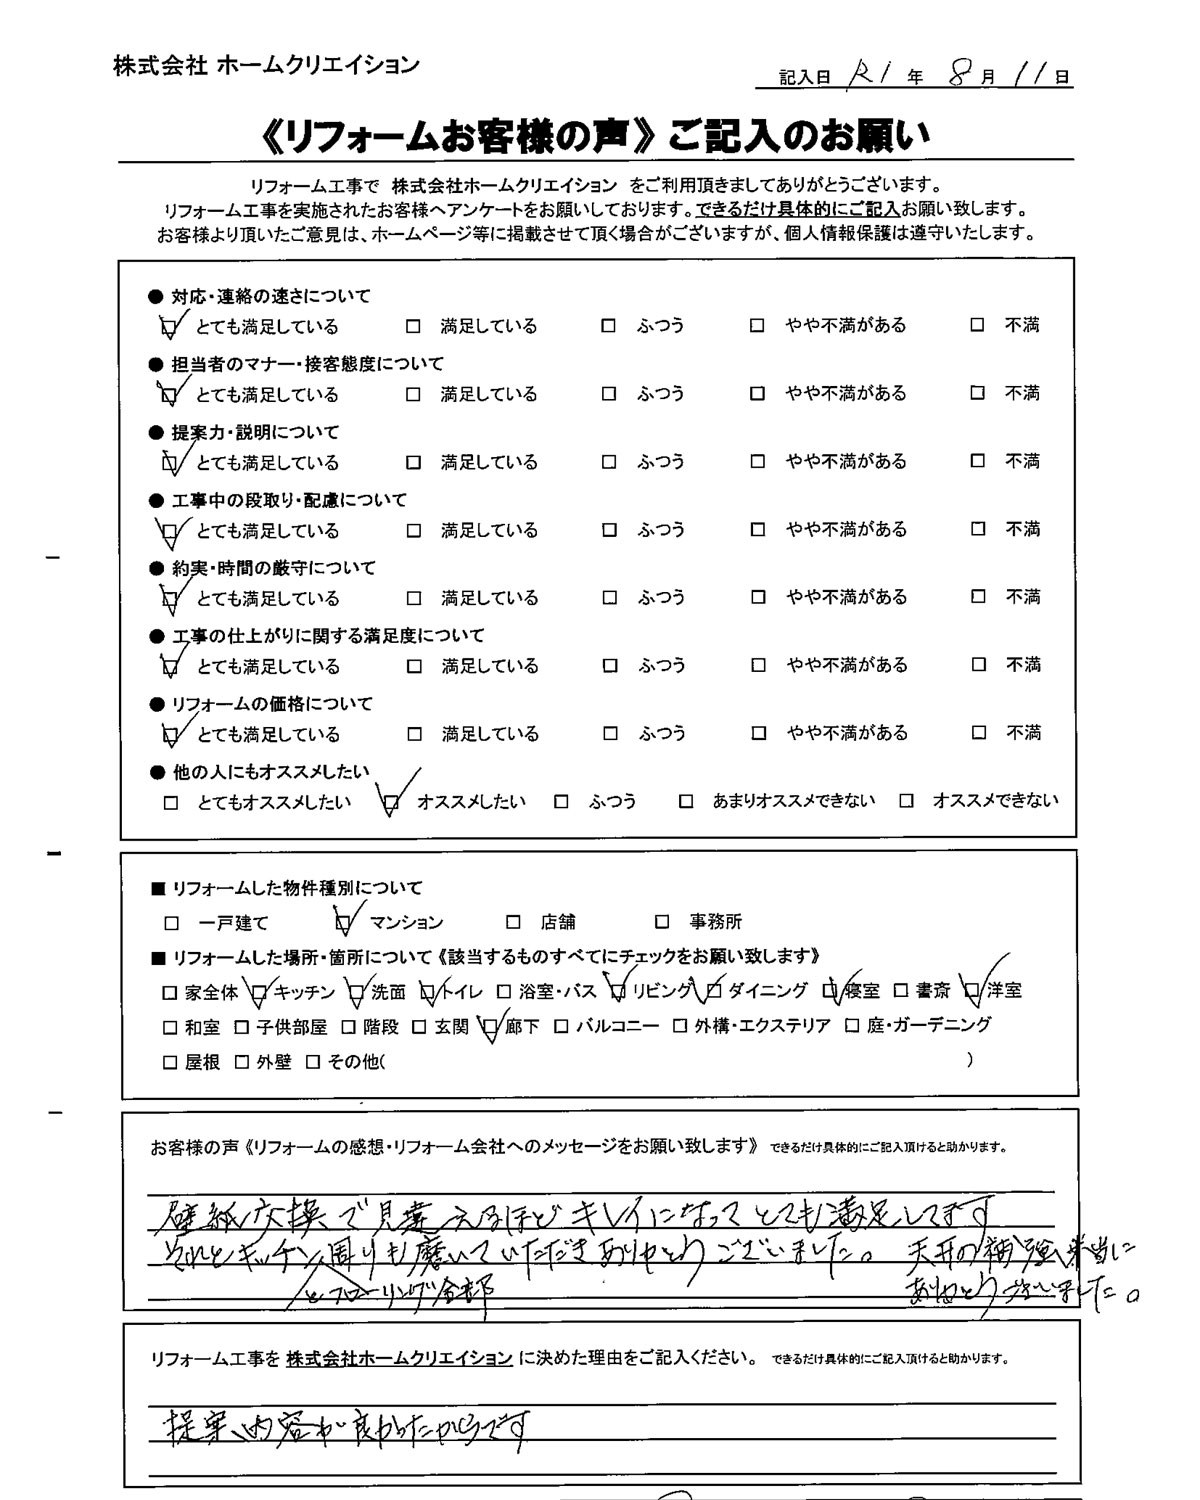 株式会社 ホームクリエイション
記入日 R1 年 8 月 11 日
《リフォームお客様の声》ご記入のお願い
リフォーム工事で 株式会社ホームクリエイション をご利用頂きましてありがとうございます。
リフォーム工事を実施されたお客様へアンケートをお願いしております。できるだけ具体的にご記入お願い致します。
お客様より頂いたご意見は、ホームページ等に掲載させて頂く場合がございますが、個人情報保護は遵守いたします。
● 対応・連絡の速さについて
☑ とても満足している □ 満足している □ ふつう □ やや不満がある □ 不満
● 担当者のマナー・接客態度について
☑ とても満足している □ 満足している □ ふつう □ やや不満がある □ 不満
● 提案力・説明について
☑ とても満足している □ 満足している □ ふつう □ やや不満がある □ 不満
● 工事中の段取り・配慮について
☑ とても満足している □ 満足している □ ふつう □ やや不満がある □ 不満
● 約実・時間の厳守について
☑ とても満足している □ 満足している □ ふつう □ やや不満がある □ 不満
● 工事の仕上がりに関する満足度について
☑ とても満足している □ 満足している □ ふつう □ やや不満がある □ 不満
● リフォームの価格について
☑ とても満足している □ 満足している □ ふつう □ やや不満がある □ 不満
● 他の人にもオススメしたい
□ とてもオススメしたい ☑ オススメしたい □ ふつう □ あまりオススメできない □ オススメできない
■ リフォームした物件種別について
□ 一戸建て ☑ マンション □ 店舗 □ 事務所
■ リフォームした場所・箇所について《該当するものすべてにチェックをお願い致します》
□ 家全体 ☑ キッチン ☑ 洗面 ☑ トイレ □ 浴室・バス ☑ リビング ☑ ダイニング ☑ 寝室 □ 書斎 ☑ 洋室
□ 和室 □ 子供部屋 □ 階段 □ 玄関 ☑ 廊下 □ バルコニー □ 外構・エクステリア □ 庭・ガーデニング
□ 屋根 □ 外壁 □ その他( )
お客様の声《リフォームの感想・リフォーム会社へのメッセージをお願い致します》 できるだけ具体的にご記入頂けると助かります。
壁紙交換で見違えるほどキレイになってとても満足してます
それとキッチン周りも磨いていただきありがとうございました。 天井の補強、本当に
とフローリング全部 ありがとうございました。
リフォーム工事を 株式会社ホームクリエイション に決めた理由をご記入ください。 できるだけ具体的にご記入頂けると助かります。
提案内容が良かったからです